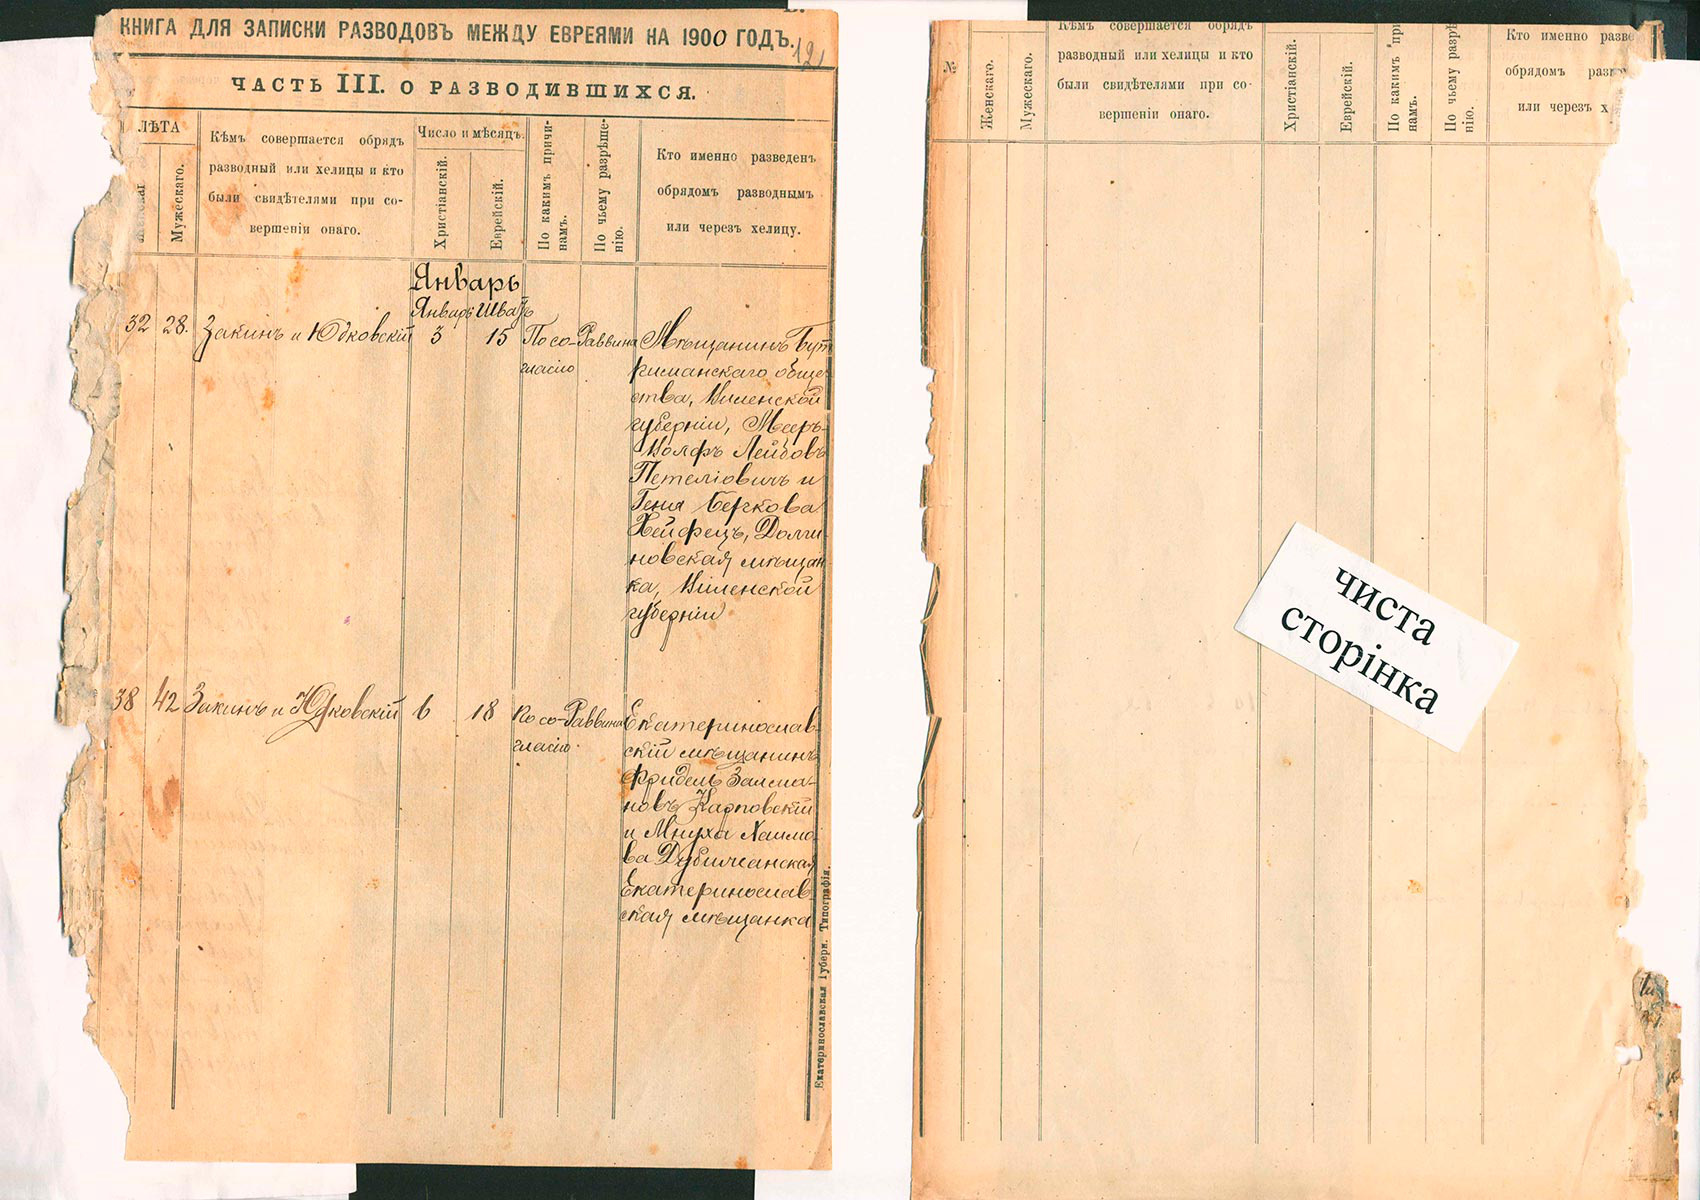 КНИГА ДЛЯ ЗАПИСКИ РАЗВОДОВЪ МЕЖДУ ЕВРЕЯМИ НА 1900 ГОДЪ.
ЧАСТЬ III. О РАЗВОДИВШИХСЯ.
ЛѢТА
Мужескаго.
Кѣмъ совершается обрядъ
разводный или хелицы и кто
были свидѣтелями при со-
вершеніи онаго.
Число и мѣсяцъ.
Христіанскій.
Еврейскій.
По какимъ причи-
намъ.
По чьему разрѣше-
нію.
Кто именно разведенъ
обрядомъ разводнымъ
или черезъ хелицу.
Январь
Январь Шватъ
32 28. Закинъ и Юдковскій 3 15 По со- Раввина
гласію
Мѣщанинъ Бут
риманскаго обще
ства, Виленской
губерніи, Мееръ-
Вольфъ Лейбовъ
Петеліовичъ и
Геня Беркова
Хейфецъ, Долги
новская мѣщан
ка, Виленской
губерніи
38 42 Закинъ и Юдковскій 6 18 По со- Раввина
гласію
Екатеринослав
скій мѣщанинъ
Фридель Залма-
новъ Карповскій
и Мнуха Хаимо
ва
Екатеринослав
ская мѣщанка
Екатеринославская Губерн. Типографія.
№
Женскаго.
Мужескаго.
Кѣмъ совершается обрядъ
разводный или хелицы и кто
были свидѣтелями при со-
вершеніи онаго.
Христіанскій.
Еврейскій.
По какимъ при
намъ.
По чьему разрѣ
нію.
Кто именно разве
обрядомъ разв
или черезъ х
чиста
сторінка